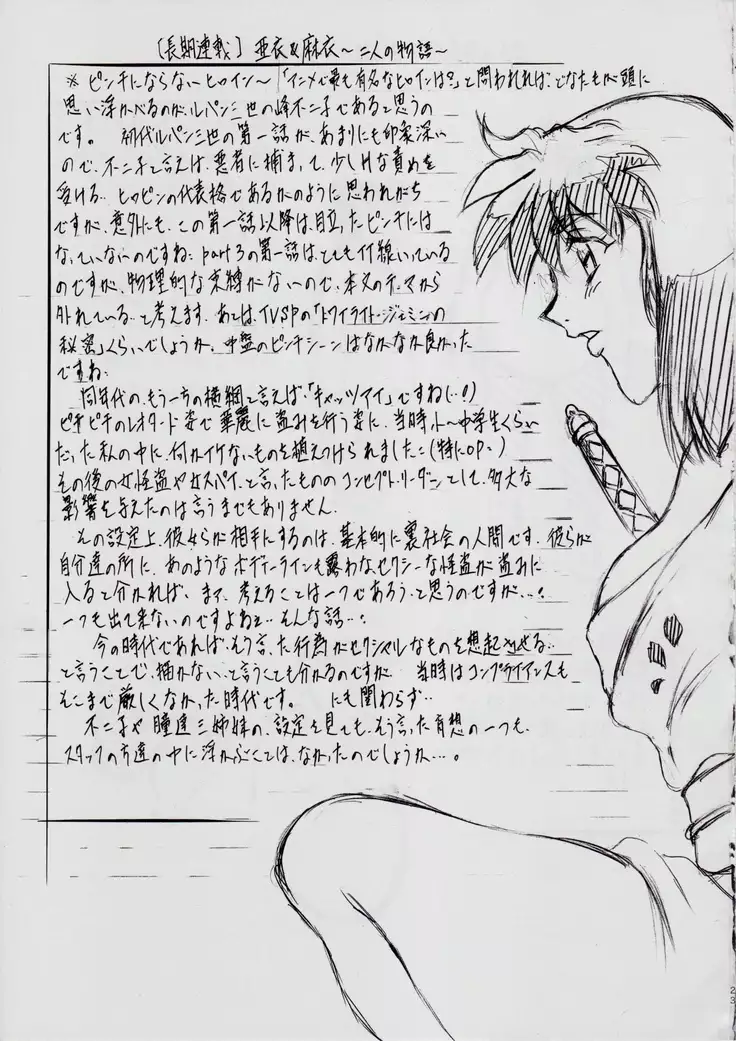 〔長期連載〕 亜衣&麻衣～二人の物語～
※ピンチにならないヒロイン～「アニメで最も有名なヒロインは?」と問われれば、どなたもが頭に
思い浮かべるのが、ルパン三世の峰不二子であると思うの
です。 初代ルパン三世の第一話が、あまりにも印象深い
ので、不二子と言えば、悪者に捕まって、少しHな責めを
受ける‥ヒロピンの代表格であるかのように思われがち
ですが、意外にも、この第一話以降は、目立ったピンチには
なっていないのですね‥part3の第一話は、とてもイイ線いっている
のですが、物理的な束縛がないので、本文のテーマから
外れている‥と考えます。あとは、TVSPの「トワイライト・ジェミニの
秘密」くらいでしょうか。中盤のピンチシーンはなかなか良かった
ですね‥
同年代の、もう一方の横綱と言えば、「キャッツアイ」ですね(‥!)
ピチピチのレオタード姿で華麗に盗みを行う姿に、当時小～中学生くらい
だった私の中に、何かイケないものを植えつけられました‥(特にOP‥)
その後の女怪盗や女スパイ、と言ったもののコンセプトリーダーとして、多大な
影響を与えたのは言うまでもありません。
その設定上、彼女らが相手にするのは、基本的に裏社会の人間です。彼らが
自分達の所に、あのようなボディーラインも露わな、セクシーな怪盗が盗みに
入ると分かれば、まァ、考えることは一つであろう、と思うのですが‥。
一つも出て来ないのですよねェ‥そんな話‥。
今の時代であれば、そう言った行為がセクシャルなものを想起させる‥
と言うことで、描かない、と言うことも分かるのですが 当時はコンプライアンスも
そこまで厳しくなかった時代です。 にも関わらず‥
不二子や瞳達三姉妹の、設定を見ても、そう言った妄想の一つも、
スタッフの方達の中に浮かぶことは、なかったのでしょうか‥。
23